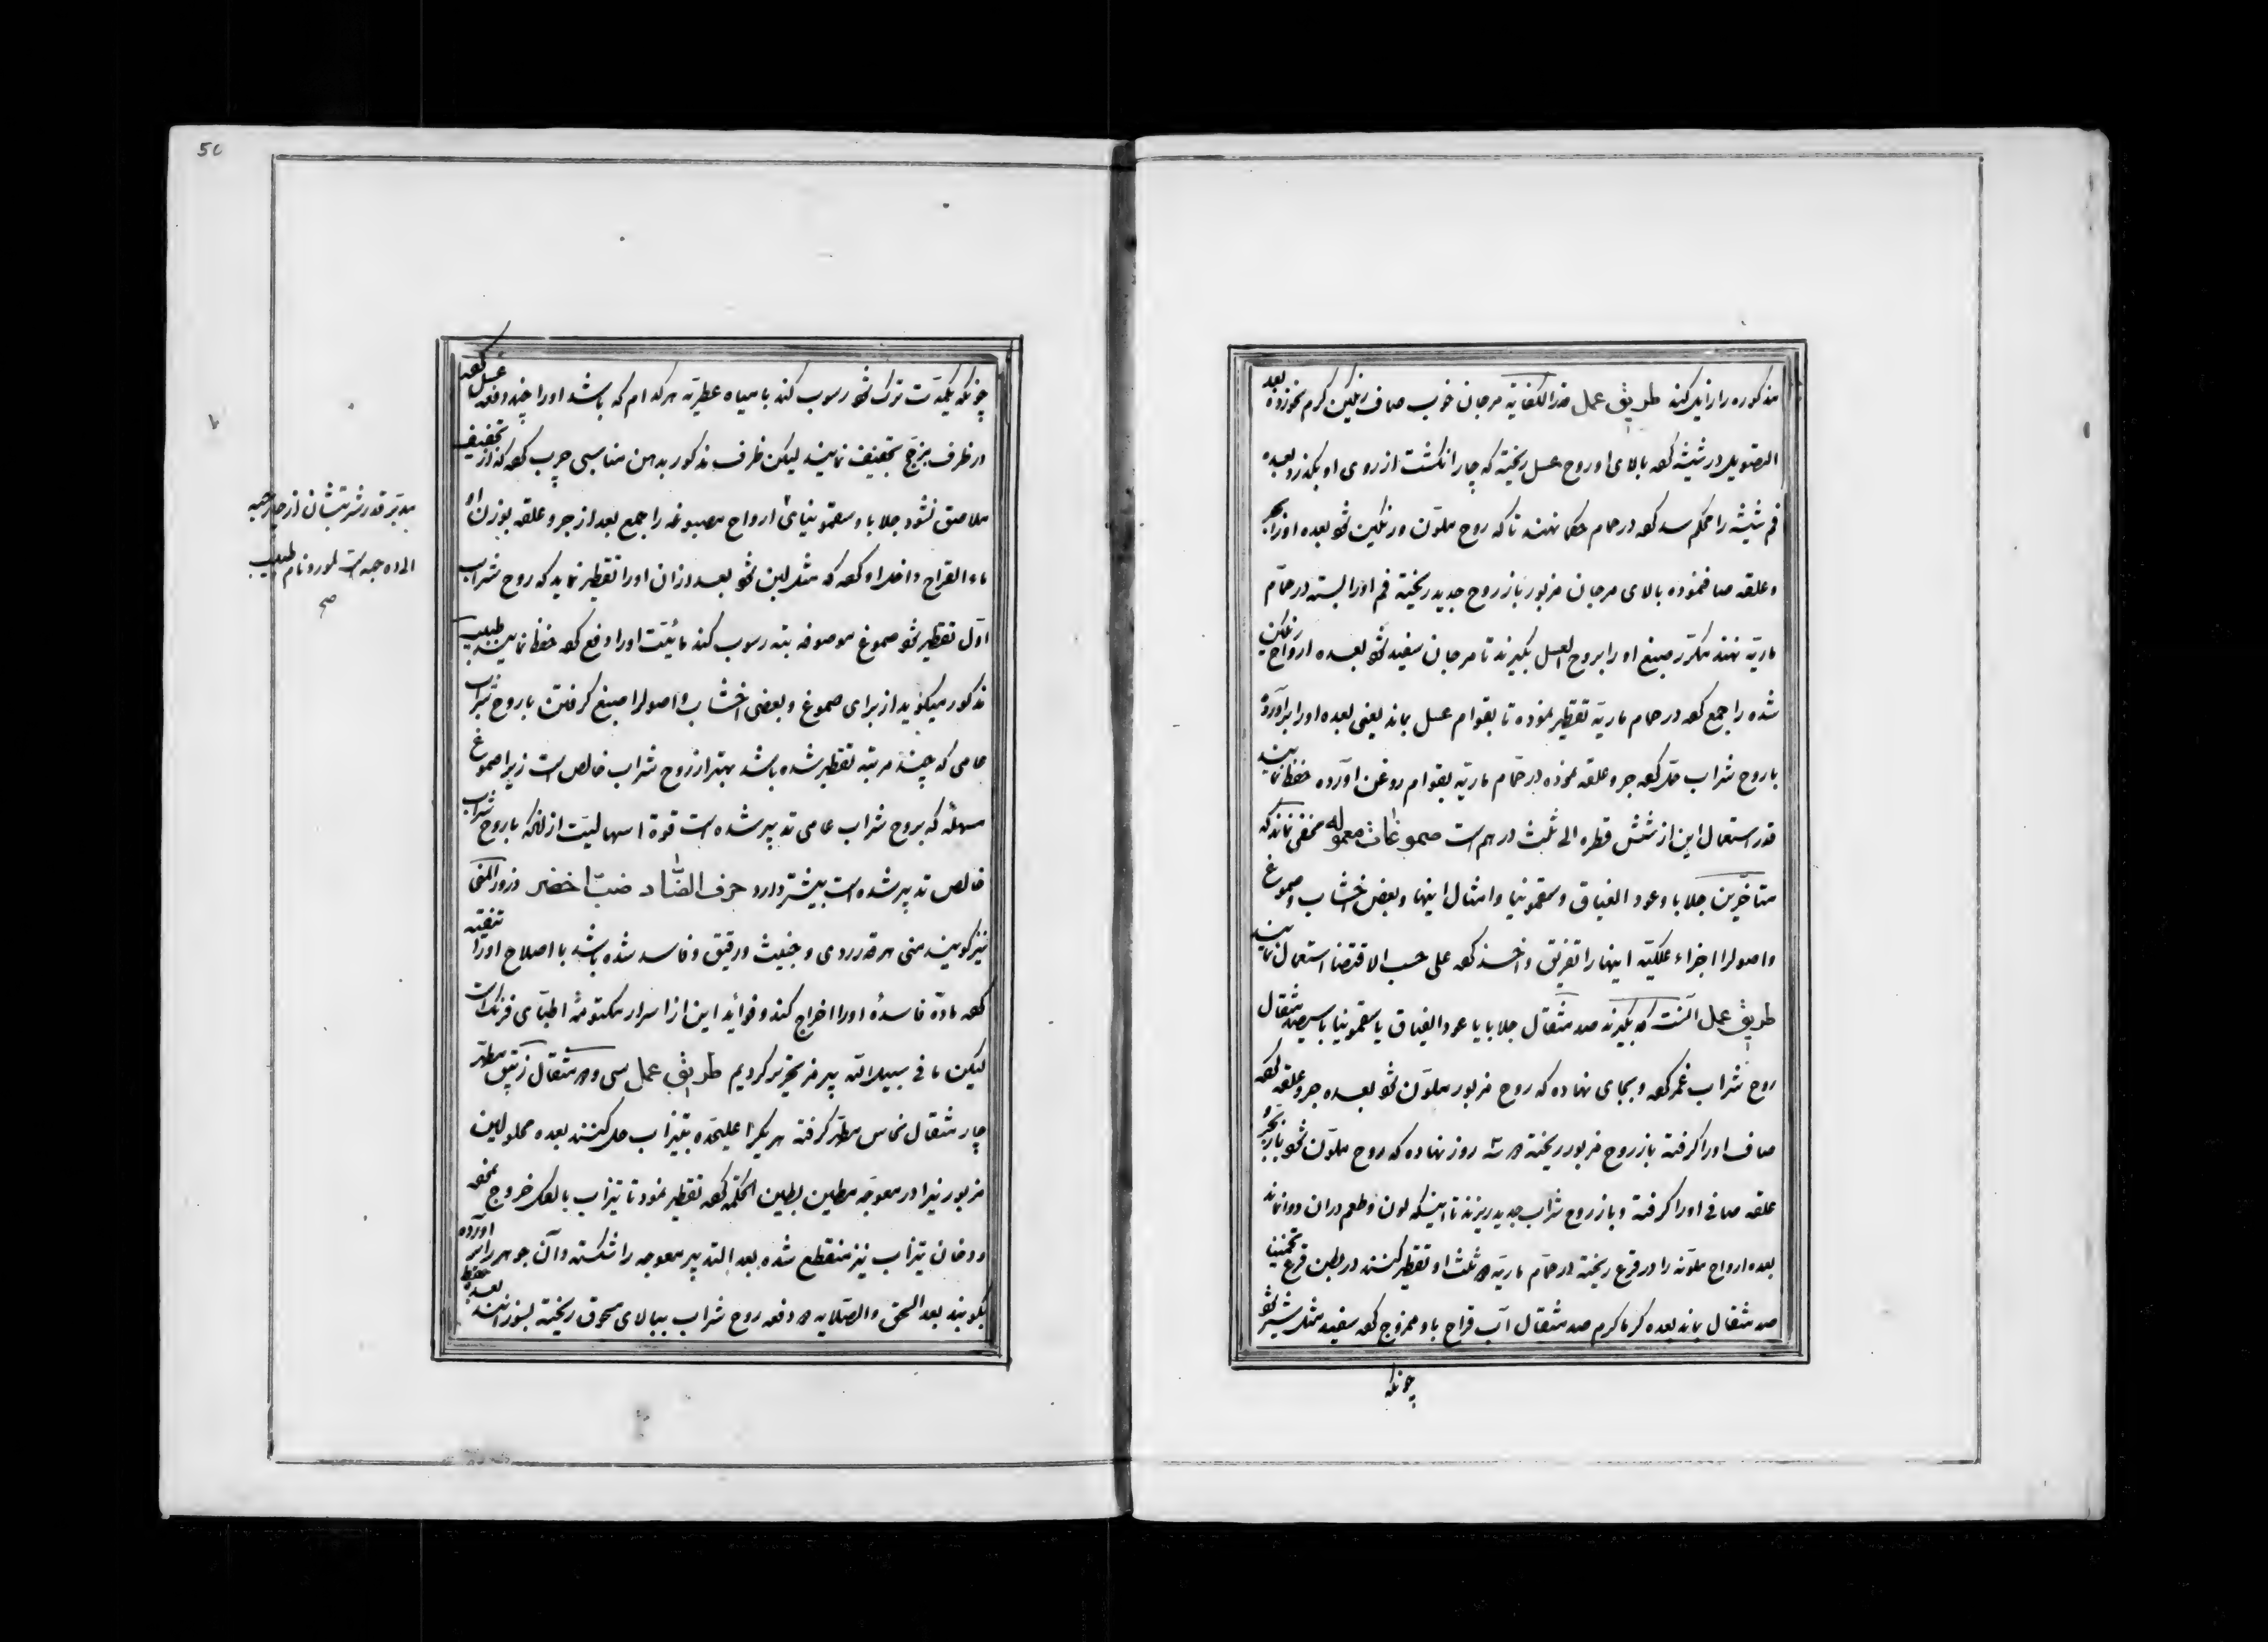 مذکوره را زایل کند طریق عمل قدر الکفایة مرجان خوب صاف رنگین گرم نموزده بعد
التصویل در شیشه کعه بالای او روح عسل ریخته که چار انگشت از روی او بگذرد بعده
فم شیشه را محکم سد کعه در حمام حکما نهند تا که روح ملوّن و رنگین شو بعده اورا بجر
و علقه صاف نموده بالای مرجان مزبور باز روح جدید ریخته فم اورا بسته در حمّام
ماریّه نهند مکرّر صبغ اورا بروح العسل بگیرند تا مرجان سفید شو بعده ارواح رنگین
شده را جمع کعه در حمام ماریّه تقطیر نموده تا بقوام عسل بماند یعنی بعده اورا برآورده
با روح شراب حل کعه جر و علقه نموده در حمّام ماریّه بقوام روغن آورده حفظ نمایند
قدر استعمال این از شش قطره الی ثلث درهم است صموغات معموله مخفی نماند که
متأخّرین جلابا و عود الغیاق و سقمونیا و امثال اینها و بعض اخشاب و صموغ
و اصول را اجزاء علکیّه اینها را تفریق و اخذ کعه علی حسب الاقتضا استعمال نمایند
طریق عمل آنست که بگیرند صد مثقال جلابا یا عود الغیاق یا سقمونیا با سیصد مثقال
روح شراب غمر کعه و بجای نهاده که روح مزبور ملوّن شو بعده جر و علقه کعه
صاف اورا گرفته باز روح مزبور ریخته سه روز نهاده که روح ملوّن شو باز بجر و
علقه صافی اورا گرفته و باز روح شراب جدید ریزند تا اینکه لون و طعم در ان دوا نماند
بعده ارواح ملوّنه را در قرع ریخته در حمّام ماریّه دو ثلث او تقطیر کنند در بطن قرع تخمینا
صد مثقال بماند بعده گرماگرم صد مثقال آب قراح باو ممزوج کعه سفید مثل شیر شو
چونکه
چونکه یکمدّت ترک شو رسوب کند با میاه عطریّه هرکدام که باشد اورا چند دفعه غسل کعه
در ظرف بزجج تجفیف نمایند لیکن ظرف مذکور بدهن مناسبی چرب کعه که از تجفیف
ملاصق نشود جلابا و سقمونیای ارواح مصبوغه را جمع بعد از جر و علقه بوزن او
ماء القراح داخل او کعه که مثل لبن شو بعد از ان اورا تقطیر نماید که روح شراب
اوّل تقطیر شو صموغ موصوفه بته رسوب کند مائیّت اورا دفع کعه حفظ نمایند طبیب
مذکور میگوید از برای صموغ و بعضی اخشاب و اصول را صبغ گرفتن با روح شراب
عامی که چند مرتبه تقطیر شده باشد بهتر از روح شراب خالص است زیرا صموغ
مسهله که بروح شراب عامی تدبیر شده است قوة اسهالیّت از انکه با روح شراب
خالص تدبیر شده است بیشتر دارد حرف الضّاد ضبّ اخضر و زور المنی
نیز گویند منی هرقدر ردی و خبیث و رقیق و فاسد شده باشد با اصلاح اورا تنقیه
کعه مادّه فاسده اورا اخراج کند و فوائد این از اسرار مکتومه اطبّای فرنک است
لیکن ما فی سبیل الله بی رمز تحریر کردیم طریق عمل سی و دو مثقال زیبق مطهّر
چار مثقال نحاس مطهّر گرفته هر یک را علیحده بتیزاب حل کنند بعده محلولین
مزبورین را در معوجّه مطیّن بطین الحکمه کعه تقطیر نمود تا تیزاب بالکل خروج نمعه
و دخان تیزاب نیز منقطع شده بعد التدبیر معوجه را شکسته و آن جوهر را بر آورده
بکوبند بعد السحق و الصّلایه دو دفعه روح شراب ببالای مسحوق ریخته بسوزانند بعده حفظ
بدیّر قدر شربتشان از چار حبه
الی ده حبه است لمورد نام طبیب
صح
50